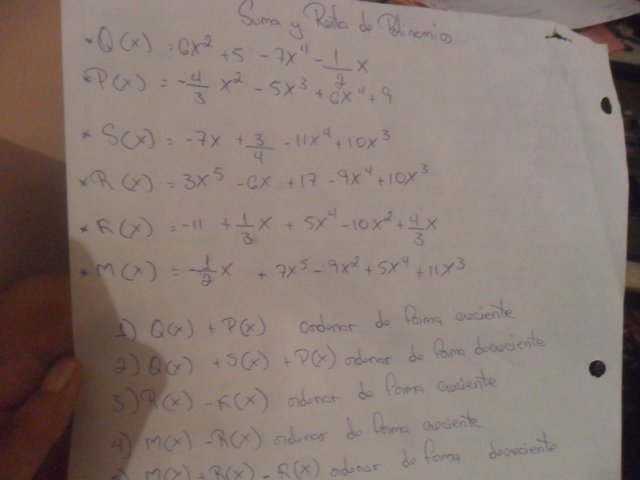 Suma y Resta de Polinomios
* Q(x) = 6x² + 5 - 7x⁴ - 1/2 x
* P(x) = -4/3 x² - 5x³ + 6x⁴ + 9
* S(x) = -7x + 3/4 - 11x⁴ + 10x³
* R(x) = 3x⁵ - 6x + 17 - 9x⁴ + 10x³
* K(x) = -11 + 1/3 x + 5x⁴ - 10x² + 4/3 x
* M(x) = -1/2 x + 7x⁵ - 9x² + 5x⁴ + 11x³
1) Q(x) + P(x) ordenar de forma creciente
2) Q(x) + S(x) + P(x) ordenar de forma decreciente
3) R(x) - K(x) ordenar de forma creciente
4) M(x) - R(x) ordenar de forma creciente
M(x) + R(x) - K(x) ordenar de forma decreciente